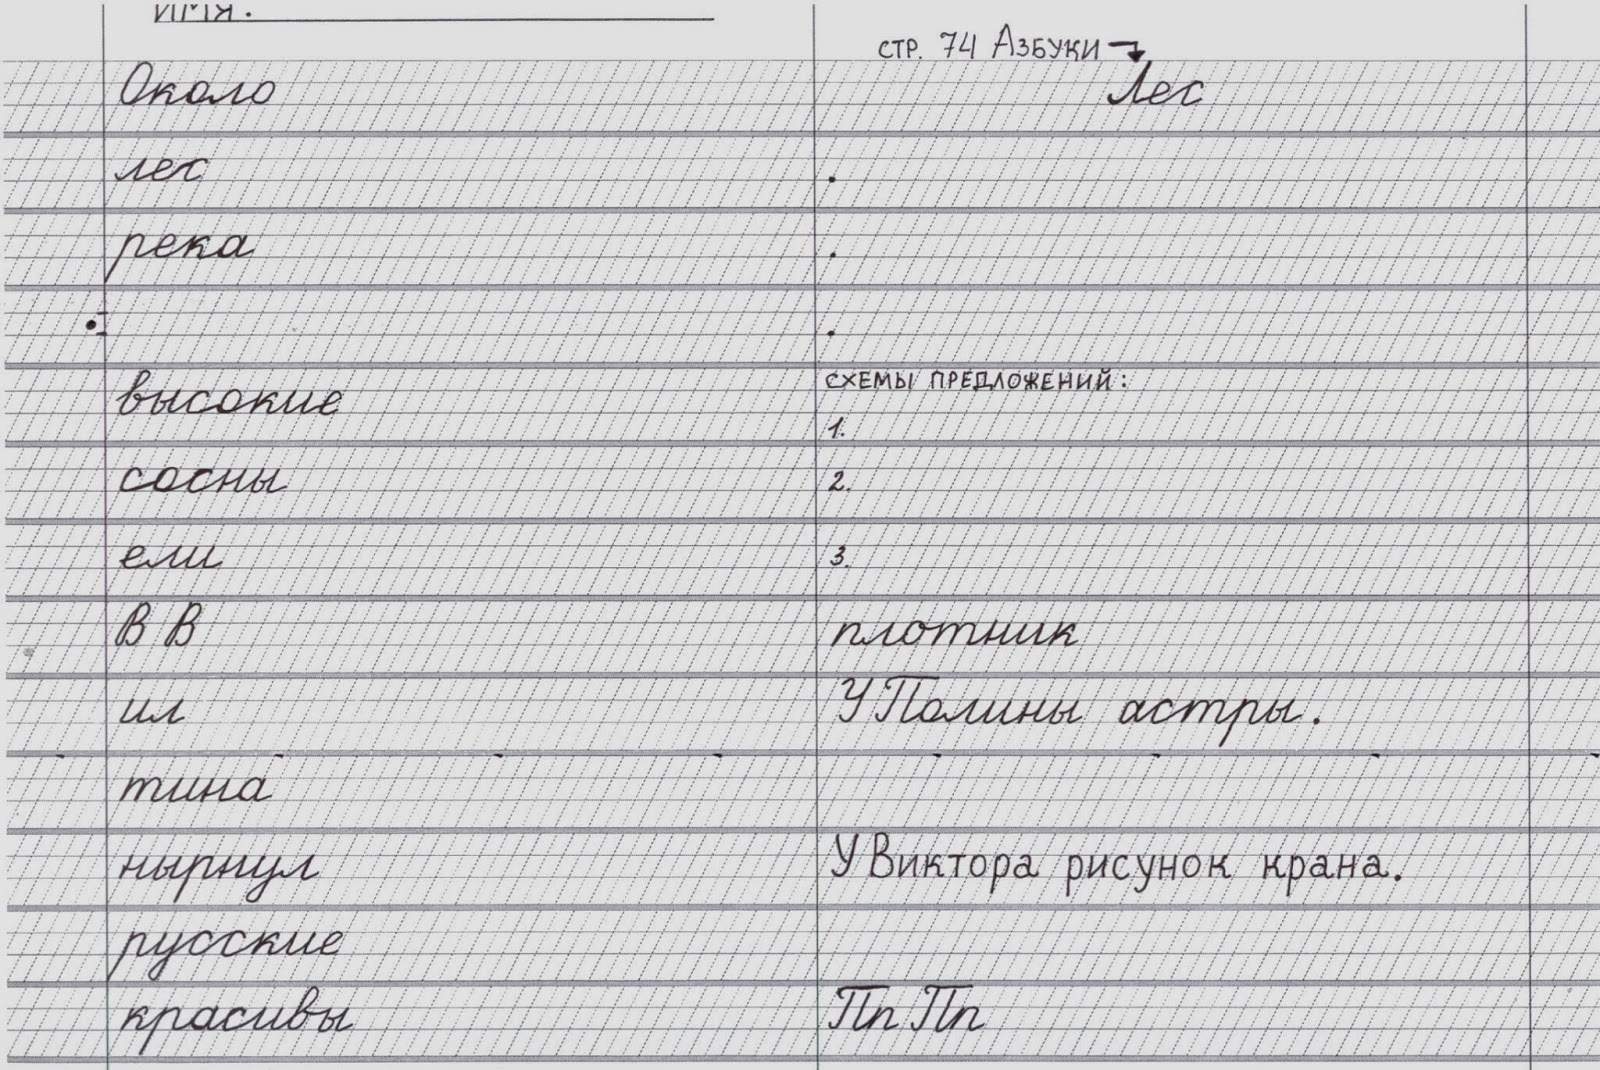 ИМЯ:
Около
лес
река
высокие
сосны
ели
В В
ил
тина
нырнул
русские
красивы
стр. 74 Азбуки
Лес
.
.
.
схемы предложений:
1.
2.
3.
плотник
У Полины астры.
У Виктора рисунок крана.
Пп Пп